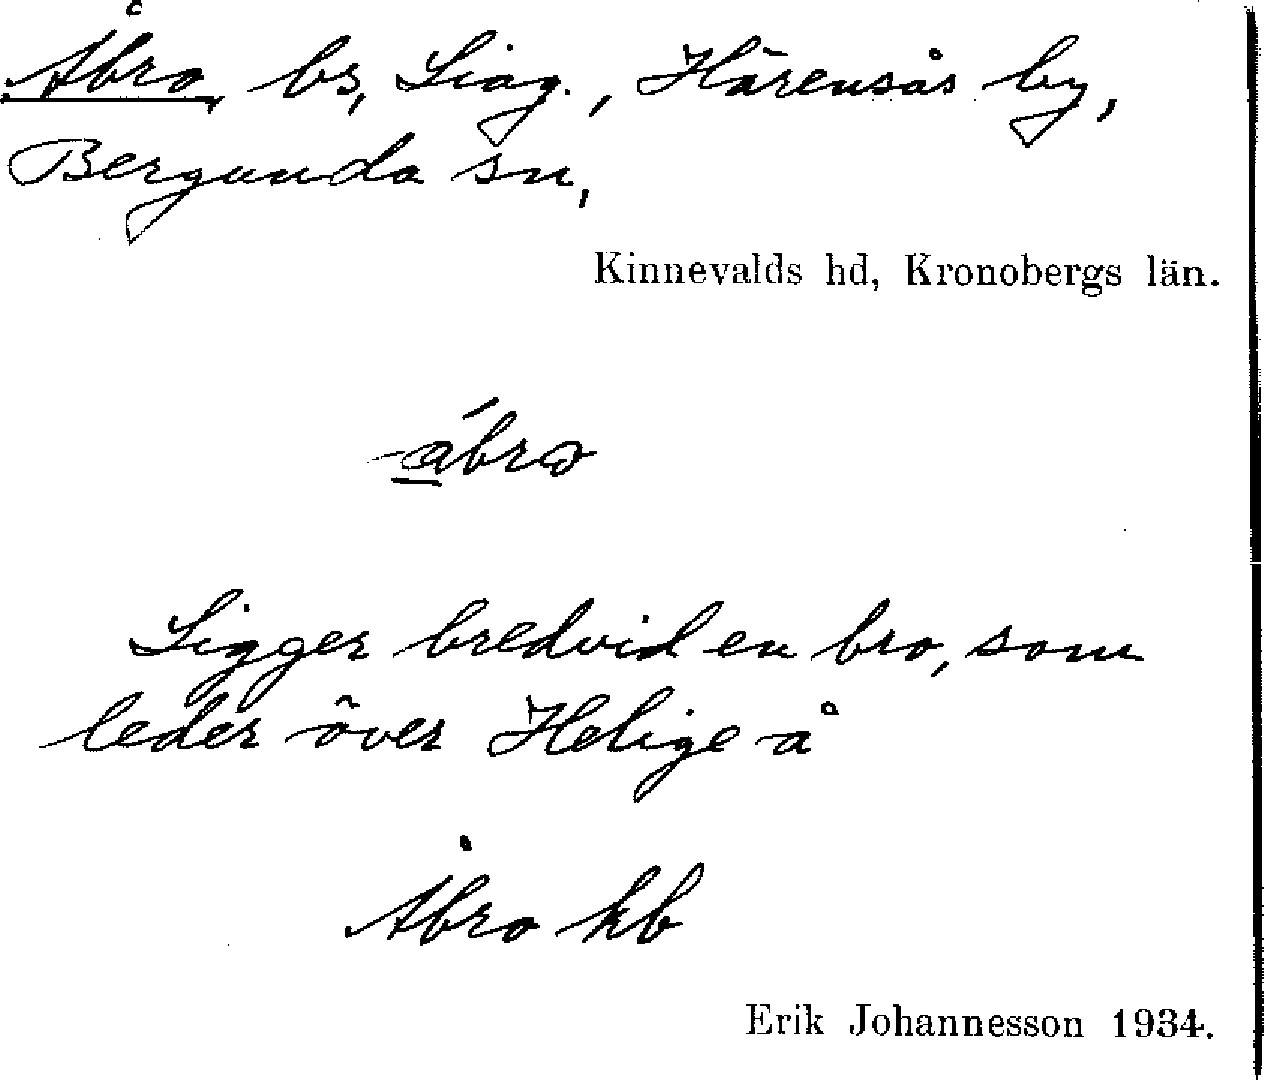 Åbro, bs, Liag., Härensås by,
Bergunda sn,
Kinnevalds hd, Kronobergs län.
ábrω
Ligger bredvid en bro, som
leder över Helige å
Åbro kb
Erik Johannesson 1934.